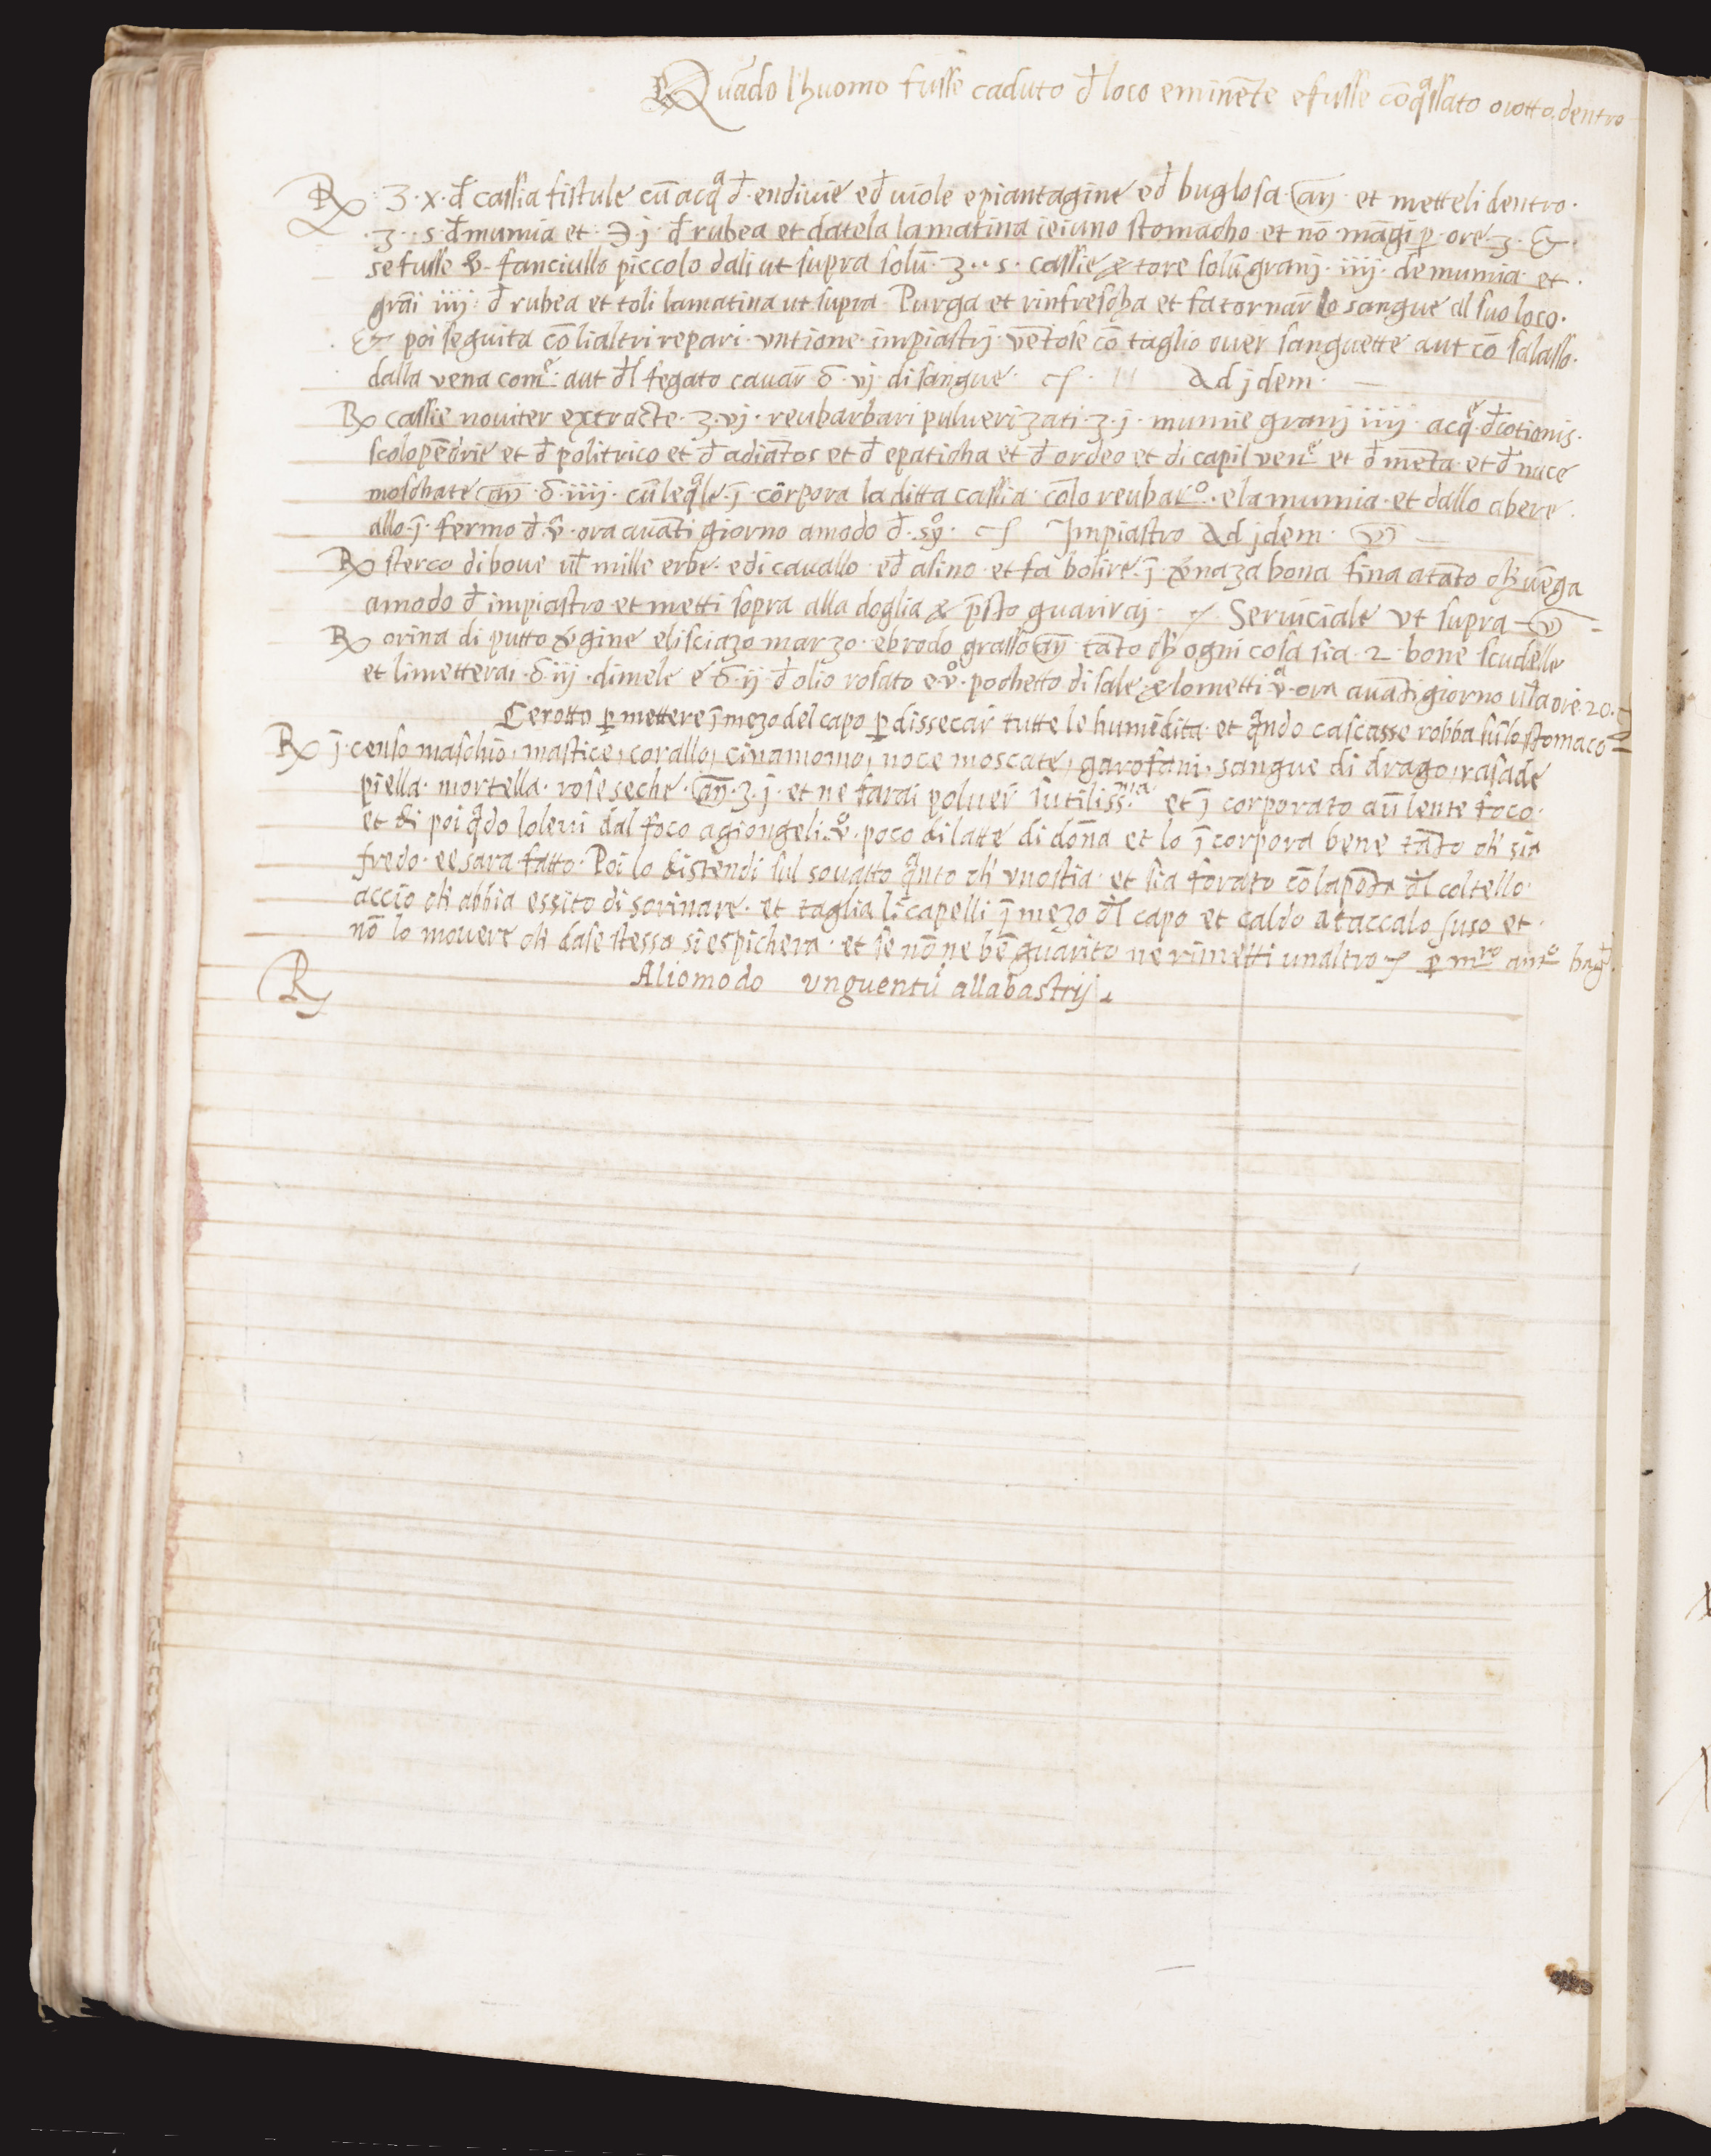 Quãdo lhuomo fusse caduto đ loco eminẽte e fusse cõqᵃssato o rotto dentro
℞ ʒ · x · đ cassia fistule cũ acqᵃ đ · endivie ed viole e piantagine ed buglosa · añ · et metteli dentro ·
· ʒ · s · đ mumia et · ℈ · j · đ rubea et datela la matina ieiuno stomacho et nõ mãgi ꝑ · ore · 3 · Et ·
se fusse v̊ · fanciullo piccolo dali ut supra solũ · ʒ · s · cassie & tore solũ granj · iiij · de mumia et ·
grãi iiij · đ rubea et toli la matina ut supra · Purga et rinfrescha et fa tornar̃ lo sangue al suo loco ·
Et poi seguita cõ li altri repari · untione · impiastrj · vẽtose cõ taglio over sanguette aut cõ salasso ·
dalla vena comᵉ · aut đl fegato cavar̃ ℥ · vj · di sangue · Ad jdem ·
℞ cassie noviter extracte · ʒ · vj · reubarbari pulverizati · ʒ · j · mumie granj iiij · acqᵉ · đcotionis ·
scolopẽdrie et đ politrico et đ adiãtos et đ epaticha et đ ordeo et di capil venᵉ et đ mẽta et đ nuce
moschate añ · ℥ · iiij · cũ leqᵃle · j̃ · corpora la ditta cassia · cõ lo reubarᵒ · e la mumia · et dallo a bere
allo · j̃ · fermo đ · v̊ · ora avãti giorno a modo đ · syᵒ · Jmpiastro Ad jdem ·
℞ sterco di bove ul̃ mille erbe · e di cavallo ed asino · et fa bolire · j̃ · v̊naza bona fina a tãto ch̃ vẽga
a modo đ impiastro et metti sopra alla doglia & p̃sto guarirai · Serviciale vt supra
℞ orina di putto v̊gine e lisciazo marzo · e brodo grasso añ tãto ch̃ ogni cosa sia · 2 · bone scudelle
et li metterai · ℥ · iij · di mele e ℥ · ij · đ olio rosato e · v̊ · pochetto di sale & lo metti · vᵃ · ora avãti giorno ul̃ a ore 20 ·
Cerotto ꝑ mettere j̃ mezo del capo ꝑ dissecar̃ tutte le humidita · et qᵃndo cascasse robba sũlo stomaco
℞ j̃ · censo maschio, mastice, corallo, cinamomo, noce moscate, garofani, sangue di drago, rasa de
piella · mortella · rose seche · añ · ʒ · j · et ne farai polver̃ sutilissᵐᵃ · et j̃ corporato aũ lente foco ·
et di poi qᵃdo lo levi dal foco agiongeli · v̊ · poco di latte di dõna et lo j̃ corpora bene tãto ch̃ sia
fredo · e e sara fatto · Poi lo distendi sul sovatto qᵃnto ch̃ vnostia · et sia forato cõ la põta đl coltello ·
accio ch̃ abbia essito di sorinare · et taglia li capelli j̃ mezo đl capo et caldo ataccalo suso et ·
nõ lo movere ch̃ da se stesso si espichera · et se nõ ne bẽ guarito ne rimetti unaltro ꝑ mʳᵒ
Alio modo unguentũ allabastrij
℞